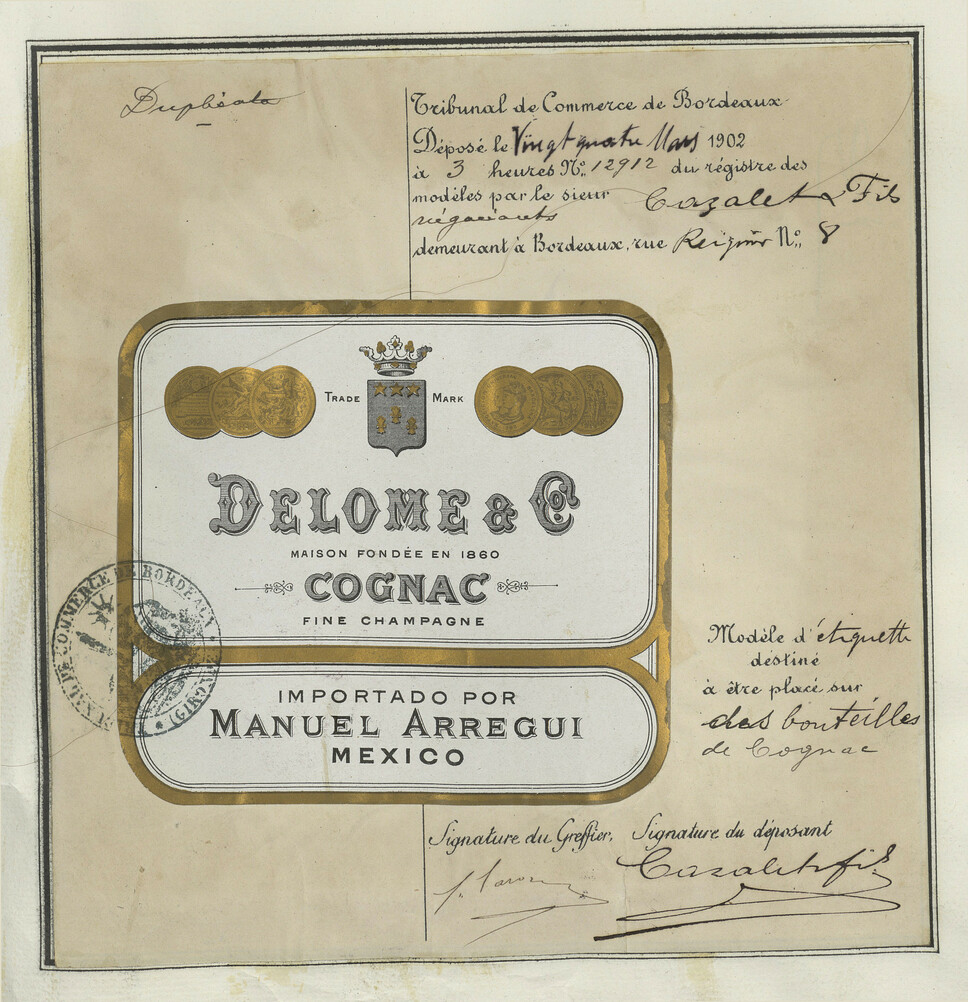 Duplicata
Tribunal de Commerce de Bordeaux
Déposé le Vingt quatre Mars 1902
à 3 heures N° 12912 du régistre des
modèles par le sieur Cazalet & Fils
négociants
demeurant à Bordeaux, rue N° 8
TRADE MARK
DELOME & Co.
MAISON FONDÉE EN 1860
COGNAC
FINE CHAMPAGNE
IMPORTADO POR
MANUEL ARREGUI
MEXICO
DE COMMERCE DE BORDEAUX
(GIRONDE
Modèle d'étiquette
destiné
à être placé sur
des bouteilles
de Cognac
Signature du Greffier, Signature du déposant
Cazalet & fils